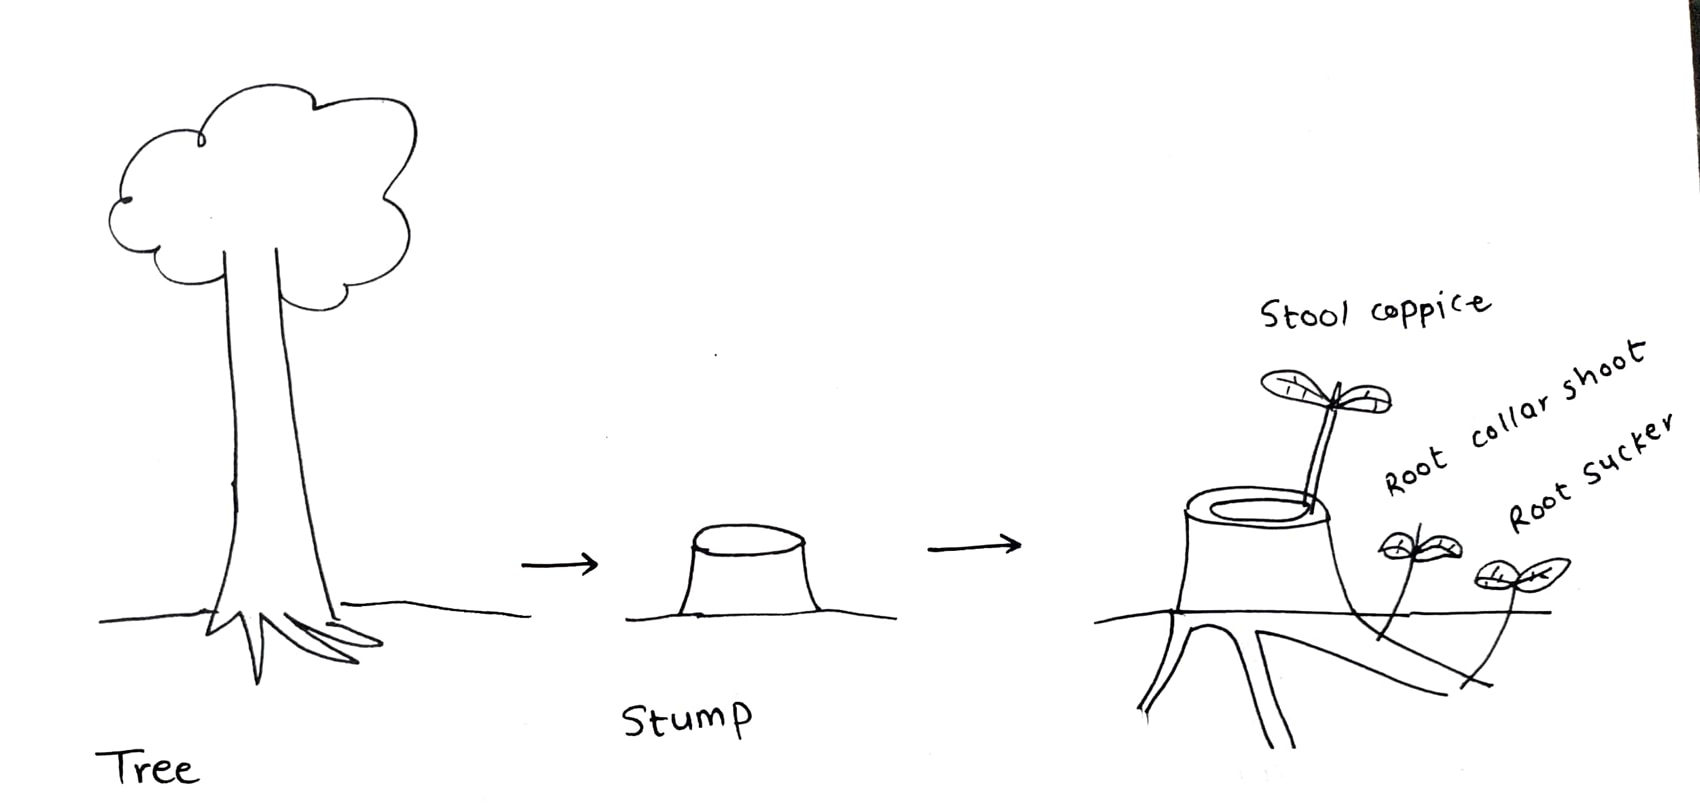 Tree
Stump
Stool coppice
Root collar shoot
Root sucker